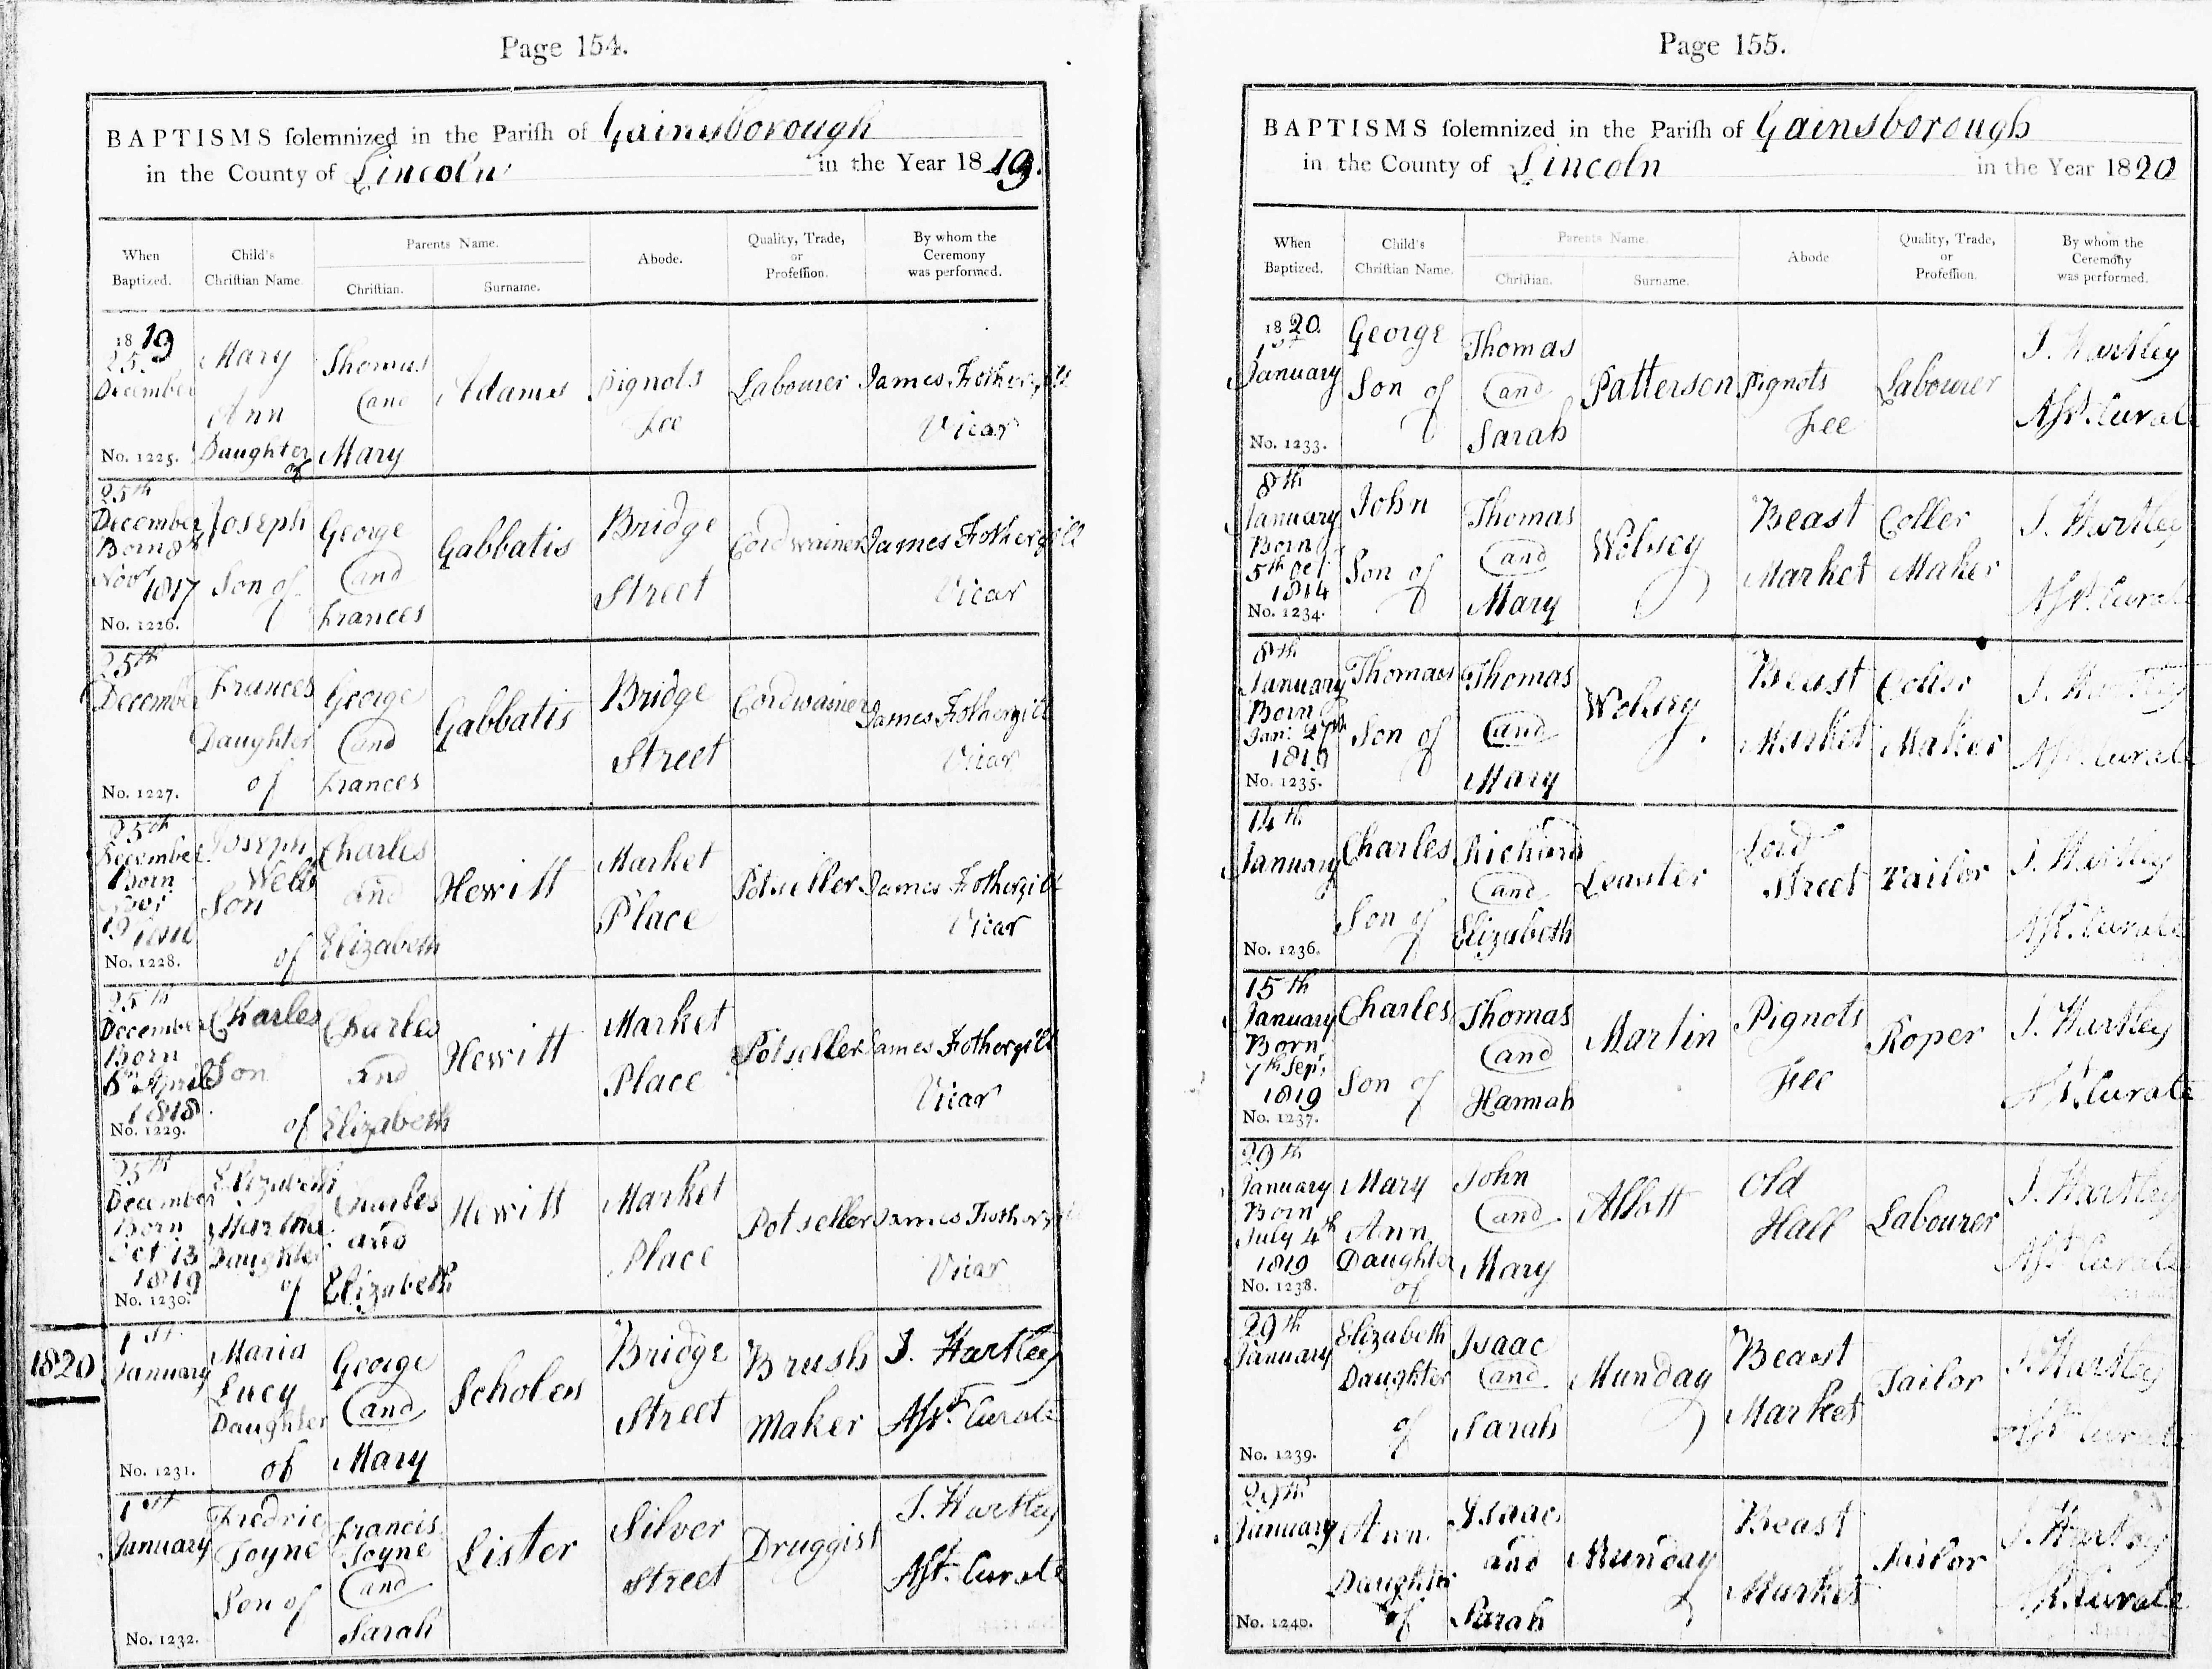 Page 154.
BAPTISMS ſolemnized in the Pariſh of Gainsborough
in the County of Lincoln in the Year 1819.
When Baptized. Child's Chriſtian Name. Parents Name. Chriſtian. Surname. Abode. Quality, Trade, or Profeſſion. By whom the Ceremony was performed.
1819
25th
December
No. 1225.
Mary
Ann
Daughter
of
Thomas
and
Mary
Adams
Pignots
Fee
Labourer
James Fothergill
Vicar
25th
December
Born 8th
Novr
1817
No. 1226.
Joseph
Son of
George
and
Frances
Gabbatis
Bridge
Street
Cordwainer
James Fothergill
Vicar
25th
December
No. 1227.
Frances
Daughter
of
George
and
Frances
Gabbatis
Bridge
Street
Cordwainer
James Fothergill
Vicar
25th
December
Born
19
No. 1228.
Joseph
Webb
Son
of
Charles
and
Elizabeth
Hewitt
Market
Place
Potseller
James Fothergill
Vicar
25th
December
Born
April
1818
No. 1229.
Charles
Son
of
Charles
and
Elizabeth
Hewitt
Market
Place
Potseller
James Fothergill
Vicar
25th
December
Born
Oct 13
1819
No. 1230.
Elizabeth
Martha
Daughter
of
Charles
and
Elizabeth
Hewitt
Market
Place
Potseller
James Fothergill
Vicar
1820
1st
January
No. 1231.
Maria
Lucy
Daughter
of
George
and
Mary
Scholes
Bridge
Street
Brush
Maker
J. Hartley
Aſst. Curate
1st
January
No. 1232.
Fredric
Joyne
Son of
Francis
Joyne
and
Sarah
Lister
Silver
Street
Druggist
J. Hartley
Aſst. Curate
Page 155.
BAPTISMS ſolemnized in the Pariſh of Gainsborough
in the County of Lincoln in the Year 1820
When Baptized. Child's Chriſtian Name. Parents Name. Chriſtian. Surname. Abode Quality, Trade, or Profeſſion. By whom the Ceremony was performed.
1820.
1st
January
No. 1233.
George
Son of
Thomas
and
Sarah
Patterson
Pignots
Fee
Labourer
J. Hartley
Aſst. Curate
8th
January
Born
5th Oct
1814
No. 1234.
John
Son of
Thomas
and
Mary
Wolsey
Beast
Market
Coller
Maker
J. Hartley
Aſst. Curate
8th
January
Born
Jan: 27th
1819
No. 1235.
Thomas
Son of
Thomas
and
Mary
Wolsey
Beast
Market
Coller
Maker
J. Hartley
Aſst. Curate
14th
January
No. 1236.
Charles
Son of
Richard
and
Elizabeth
Leaster
Lord
Street
Tailor
J. Hartley
Aſst. Curate
15th
January
Born
7th Sep.
1819
No. 1237.
Charles
Son of
Thomas
and
Hannah
Martin
Pignots
Fee
Roper
J. Hartley
Aſst. Curate
29th
January
Born
July 4th
1819
No. 1238.
Mary
Ann
Daughter
of
John
and
Mary
Abbott
Old
Hall
Labourer
J. Hartley
Aſst. Curate
29th
January
No. 1239.
Elizabeth
Daughter
of
Isaac
and
Sarah
Munday
Beast
Market
Tailor
J. Hartley
Aſst. Curate
29th
January
No. 1240.
Ann
Daughter
of
Isaac
and
Sarah
Munday
Beast
Market
Tailor
J. Hartley
Aſst. Curate